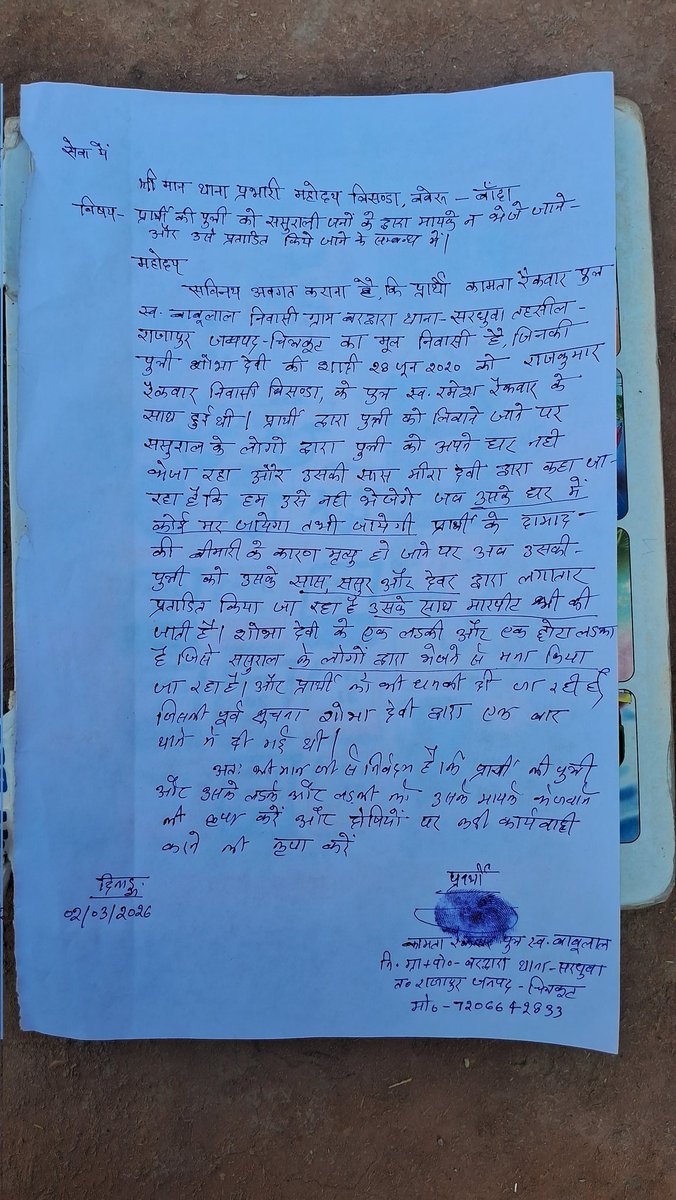 सेवा में
श्री मान थाना प्रभारी महोदय बिसण्डा, बबेरू - बाँदा
विषय- प्रार्थी की पुत्री को ससुराली जनों के द्वारा मायके न भेजे जाने-
और उसे प्रताडित किये जाने के सम्बन्ध में।
महोदय
सविनय अवगत कराना है, कि प्रार्थी कामता रैकवार पुत्र
स्व. बाबूलाल निवासी ग्राम बरद्वारा थाना- सरधुवा तहसील-
राजापुर जनपद-चित्रकूट का मूल निवासी है, जिनकी
पुत्री शोभा देवी की शादी 28 जून 2020 को राजकुमार
रैकवार निवासी बिसण्डा, के पुत्र स्व. रमेश रैकवार के
साथ हुई थी। प्रार्थी द्वारा पुत्री को लिवाने जाने पर
ससुराल के लोगो द्वारा पुत्री को अपने घर नही
भेजा रहा और उसकी सास मीरा देवी द्वारा कहा जा-
रहा है कि हम उसे नही भेजेगे जब उसके घर में
कोई मर जायेगा तभी जायेगी प्रार्थी के दामाद
की बीमारी के कारण मृत्यु हो जाने पर अब उसकी-
पुत्री को उसके सास, ससुर और देवर द्वारा लगातार
प्रताडित किया जा रहा है उसके साथ मारपीट भी की
जाती है। शोभा देवी के एक लडकी और एक छोटा लडका
है जिसे ससुराल के लोगों द्वारा भेजने से मना किया
जा रहा है। और प्रार्थी को भी धमकी दी जा रही है,
जिसकी पूर्व सूचना शोभा देवी द्वारा एक बार
थाने में दी गई थी।
अतः श्री मान जी से निवेदन है कि प्रार्थी की पुत्री
और उसके लडके और लडकी को उसके मायके भेजवाने
की कृपा करें और दोषियों पर कडी कार्यवाही
करने की कृपा करें
दिनाङ्क:
02/03/2026
प्रार्थी
कामता रैकवार पुत्र स्व. बाबूलाल
नि. ग्रा+पो०- बरद्वारा थाना-सरधुवा
त० राजापुर जनपद-चित्रकूट
मो० -7206642833